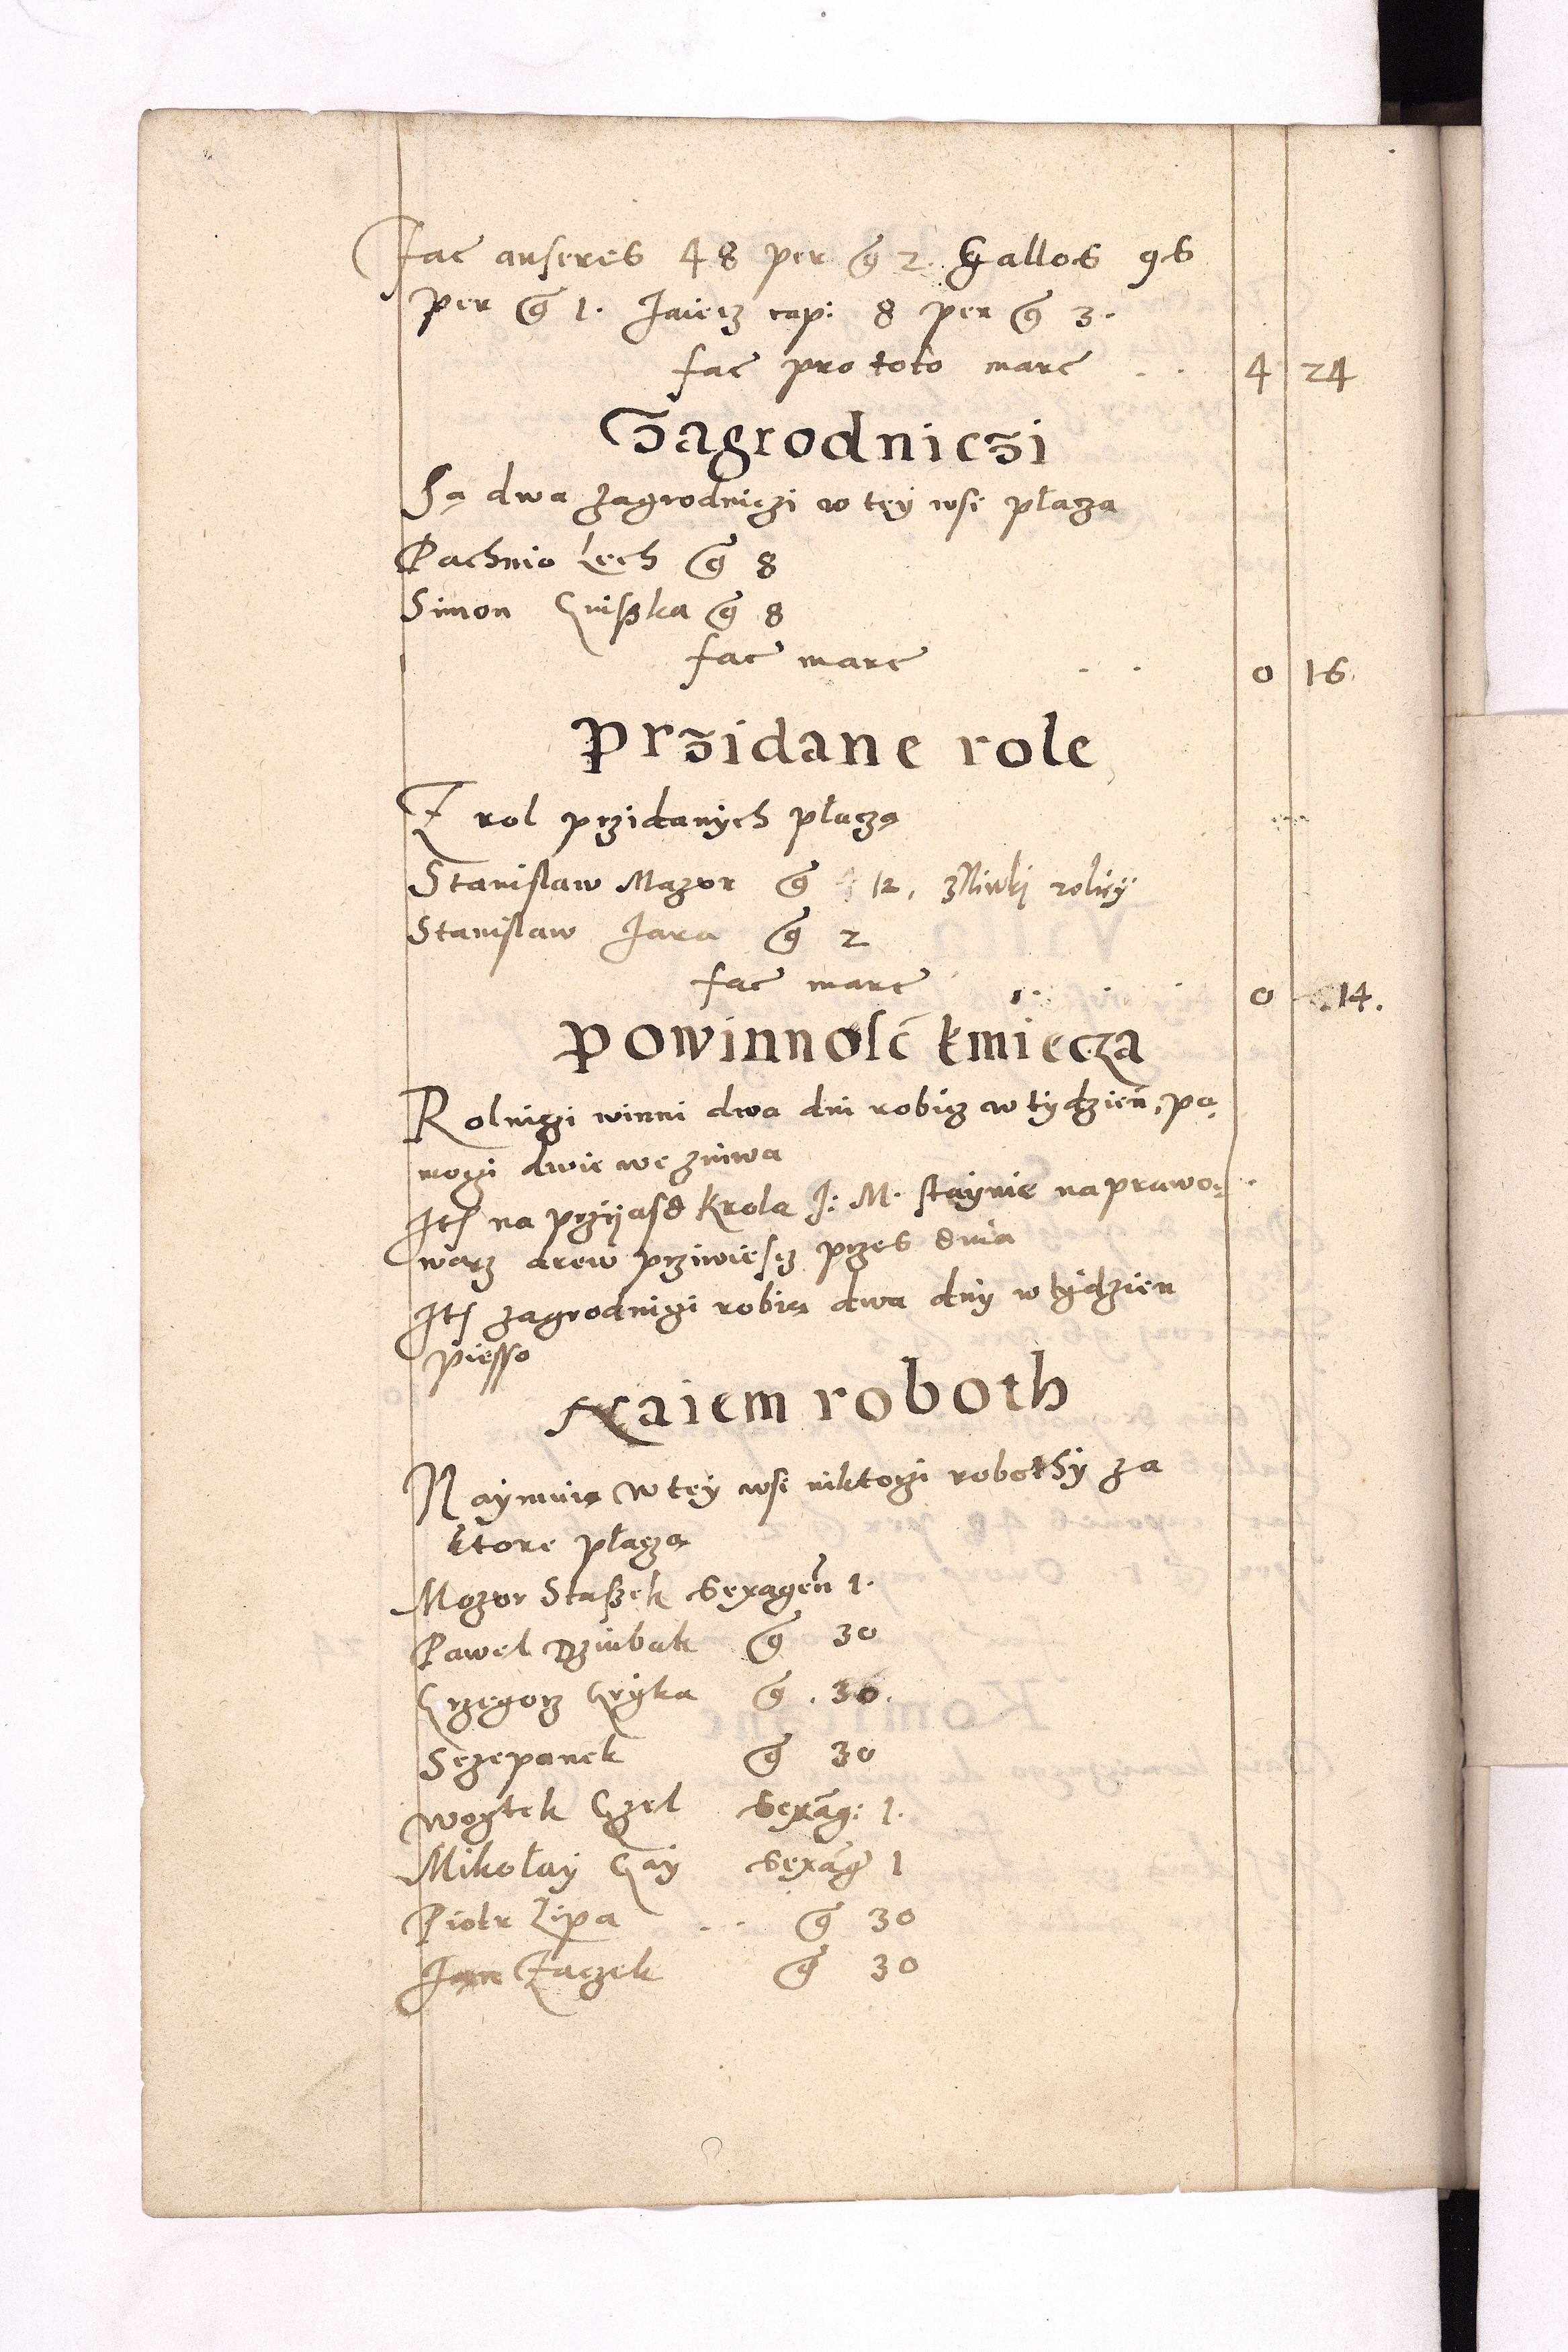 Fac anseres 48 per g 2. Gallos 96
per g 1. Jaiecz cap: 8 per g 3.
fac pro toto marc . . 4 24
Zagrodniczi
Są dwa zagrodniczi w tey wsi płacza
Pachnio Lech g 8
Simon Gnißka g 8
fac marc . . 0 16.
Przidane role
Z rol przidanych płaczą
Stanislaw Mazor g 12, z Niwki rolicÿ
Stanislaw Jara g 2
fac marc . . 0 14.
Powinnosć kmiecza
Rolniczi winni dwa dni robicz w tydzien, po„
mogi dwie we zniwa
Itˢ na przÿasd Krola J: M. staynie naprawo„
wacz drew przÿwiescz przes dnia
Itˢ zagrodniczi robią dwa dnÿ w tydzien
piesso
Naiem roboth
Naymuią w tey wsi niktorzi robothÿ za
ktore płaczą
Mozor Staßek sexagen 1.
Pawel Dziubak g 30
Grzegorz Gryka g . 30.
Sczepanek g 30
Woÿtek Gzel sexag: 1.
Mikołaÿ Gaÿ sexag 1
Piotr Lipa . . g 30
Jan Zaczek g 30